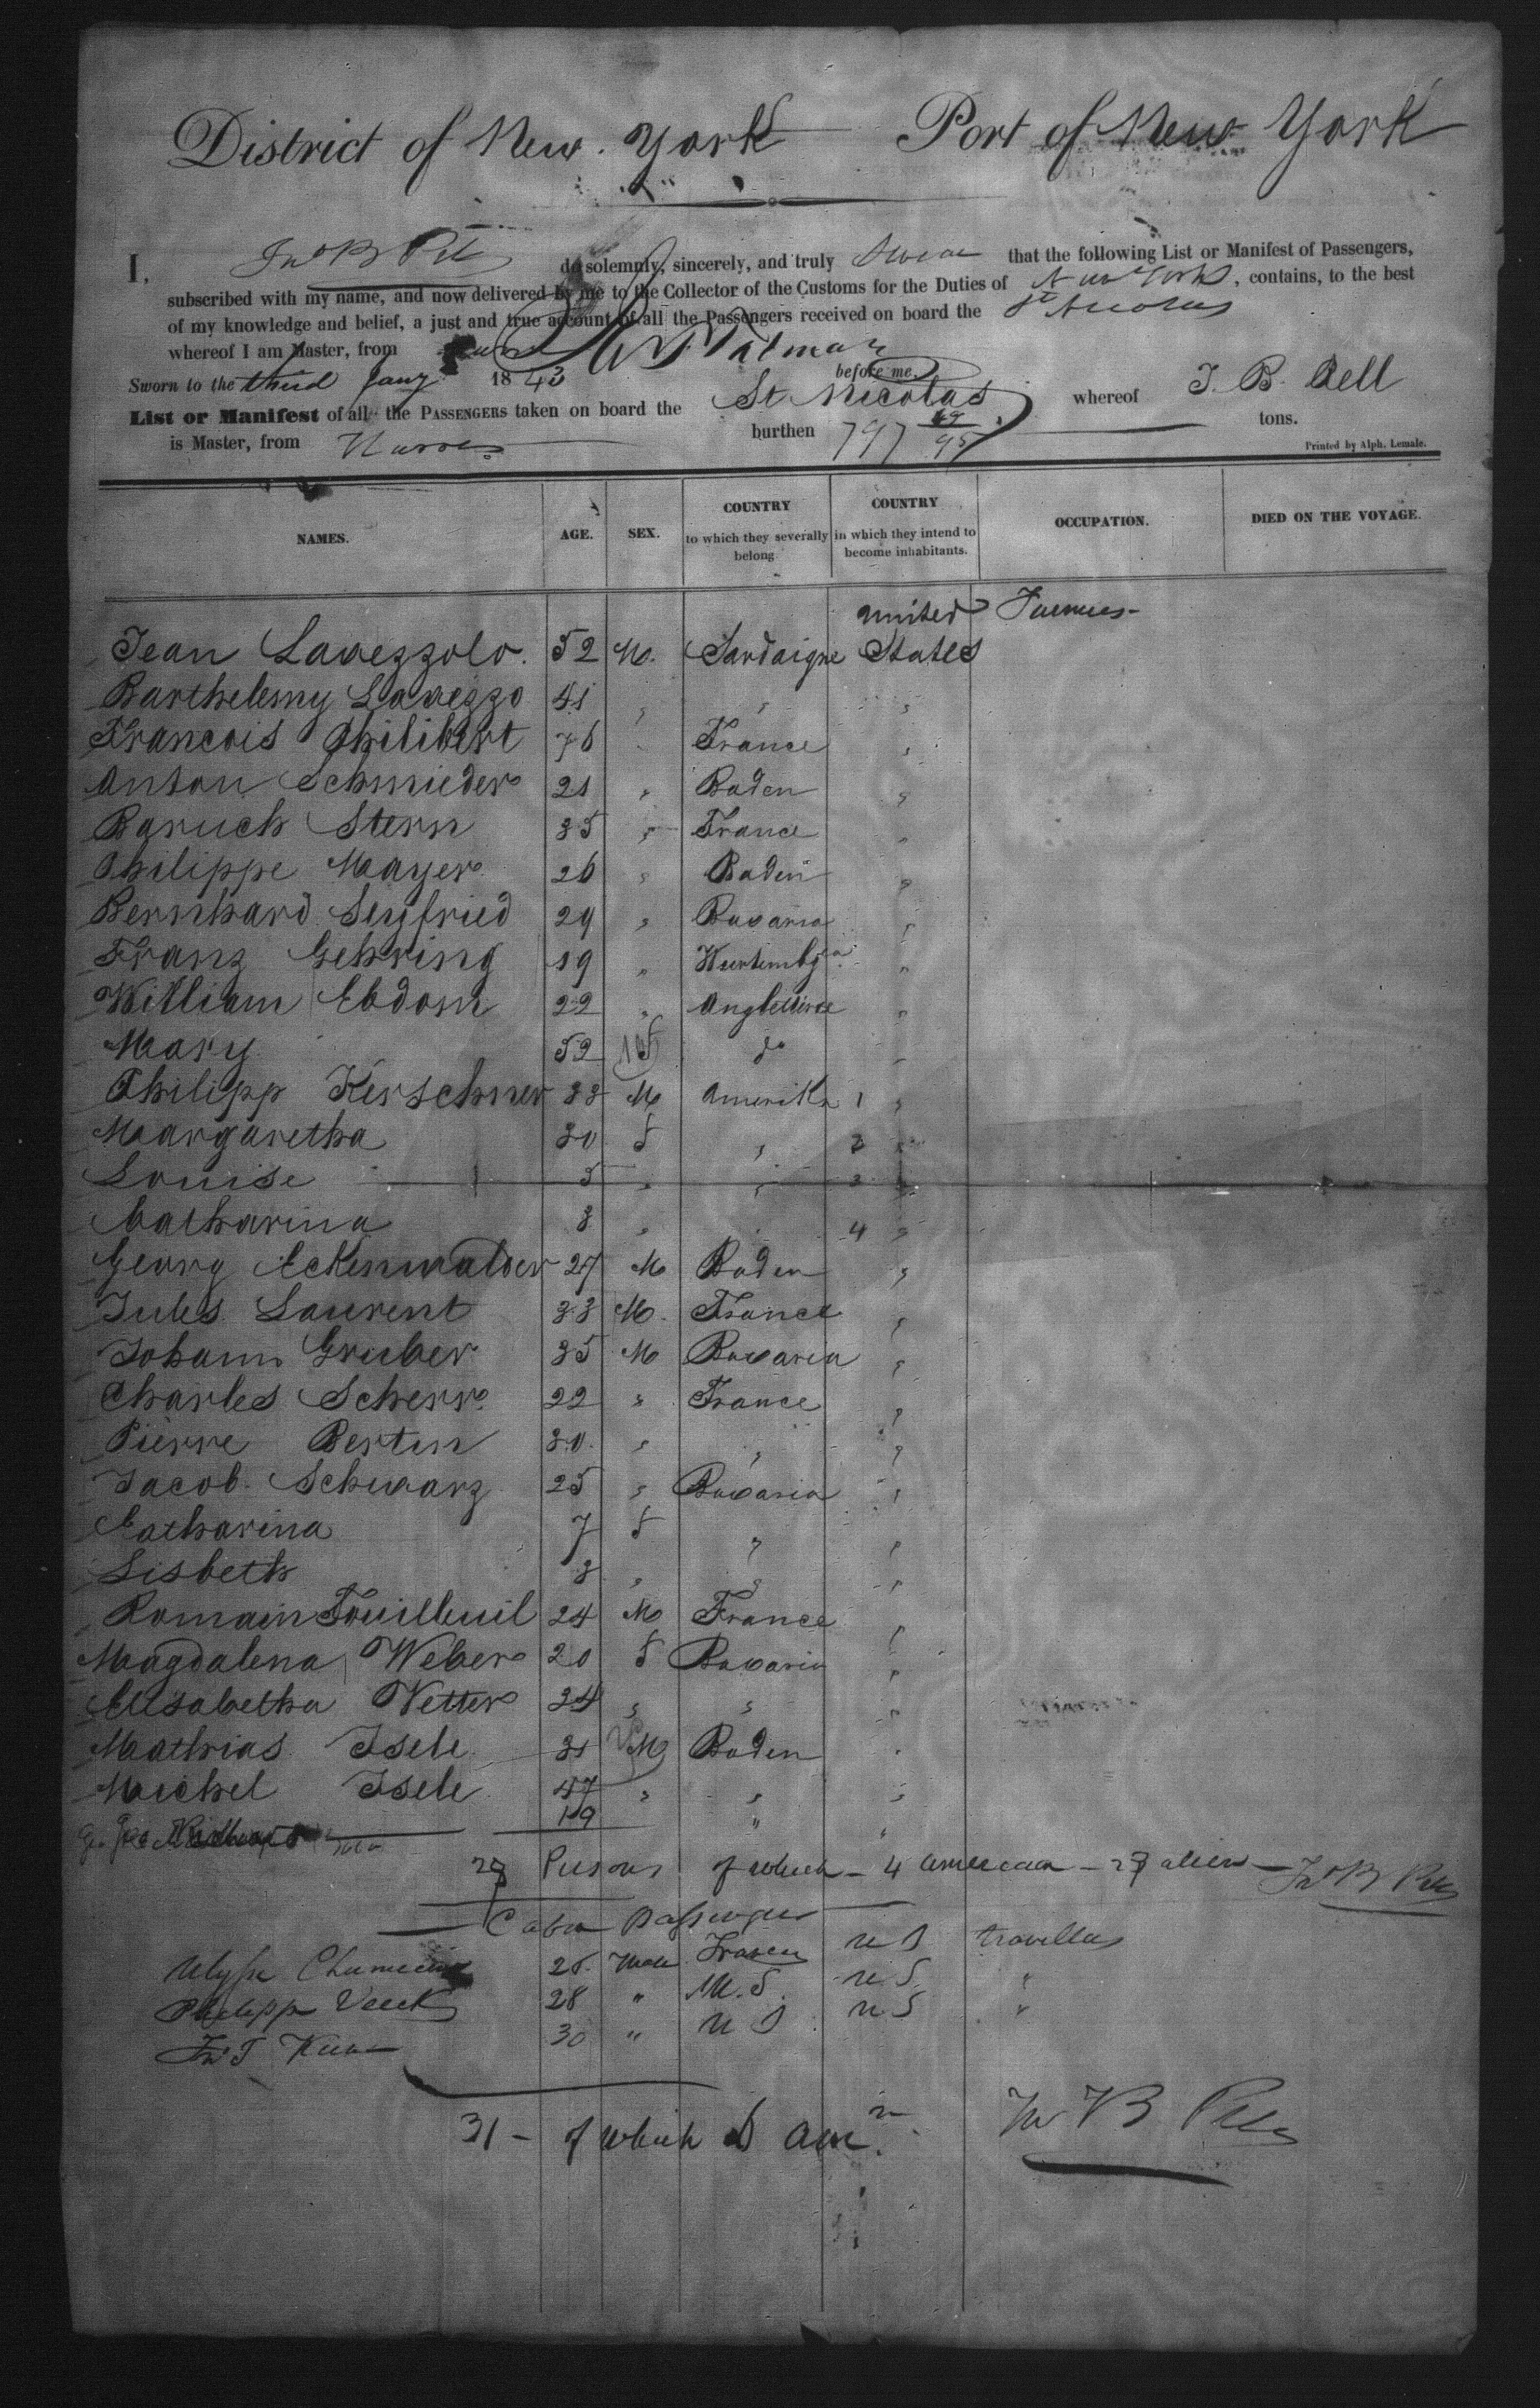 District of New York Port of New York
I, Jno B Pell do solemnly, sincerely, and truly Swear that the following List or Manifest of Passengers,
subscribed with my name, and now delivered by me to the Collector of the Customs for the Duties of New York, contains, to the best
of my knowledge and belief, a just and true account of all the Passengers received on board the St Nicolas
whereof I am Master, from Havre
Sworn to the third Jany 1843 before me,
List or Manifest of all the PASSENGERS taken on board the St Nicolas whereof J. B. Pell
is Master, from Havre burthen 797 49/95 tons.
Printed by Alph. Lemale.
NAMES. AGE. SEX. COUNTRY to which they severally belong COUNTRY in which they intend to become inhabitants. OCCUPATION. DIED ON THE VOYAGE.
Jean Lavezzolo. 52 M. Sardaigne United States Farmers
Barthelemy Lavezzo 41 " " "
Francois Philibert 76 " France "
Anton Schmieder 21 " Baden "
Baruch Stern 35 " France "
Philippe Mayer 26 " Baden "
Bernhard Siegfried 29 " Bavaria "
Franz Gehring 19 " Wurtembg "
William Ebdom 22 " Angleterre "
Mary 52 F do "
Philipp Kerschner 33 M Amerika 1 "
Margaretha 30 F " 2 "
Louise 5 " " 3 "
Catharina 3 " " 4 "
Georg Eckenwalder 27 M Baden "
Jules Laurent 33 M. France "
Johann Gruber 35 M Bavaria "
Charles Scherr 22 " France "
Pierre Bertin 30. " " "
Jacob Schwarz 25 " Bavaria "
Catharina 7 F " "
Lisbeth 3 " " "
Romain Fouilleuil 24 M France "
Magdalena Weber 20 F Bavaria "
Elisabetha Vetter 24 " " "
Mathias Isele 31 M Baden "
Michel Isele 47 " " "
19 " "
28 Persons of which - 4 American - alien - Jno B Pell
Cabin Passengers
Ulysse 26 Male France U S travellers
Philipp Veeck 28 " U. S. U. S. "
Jno T 30 " U S U S "
31 - of which Amn. Jno B Pell